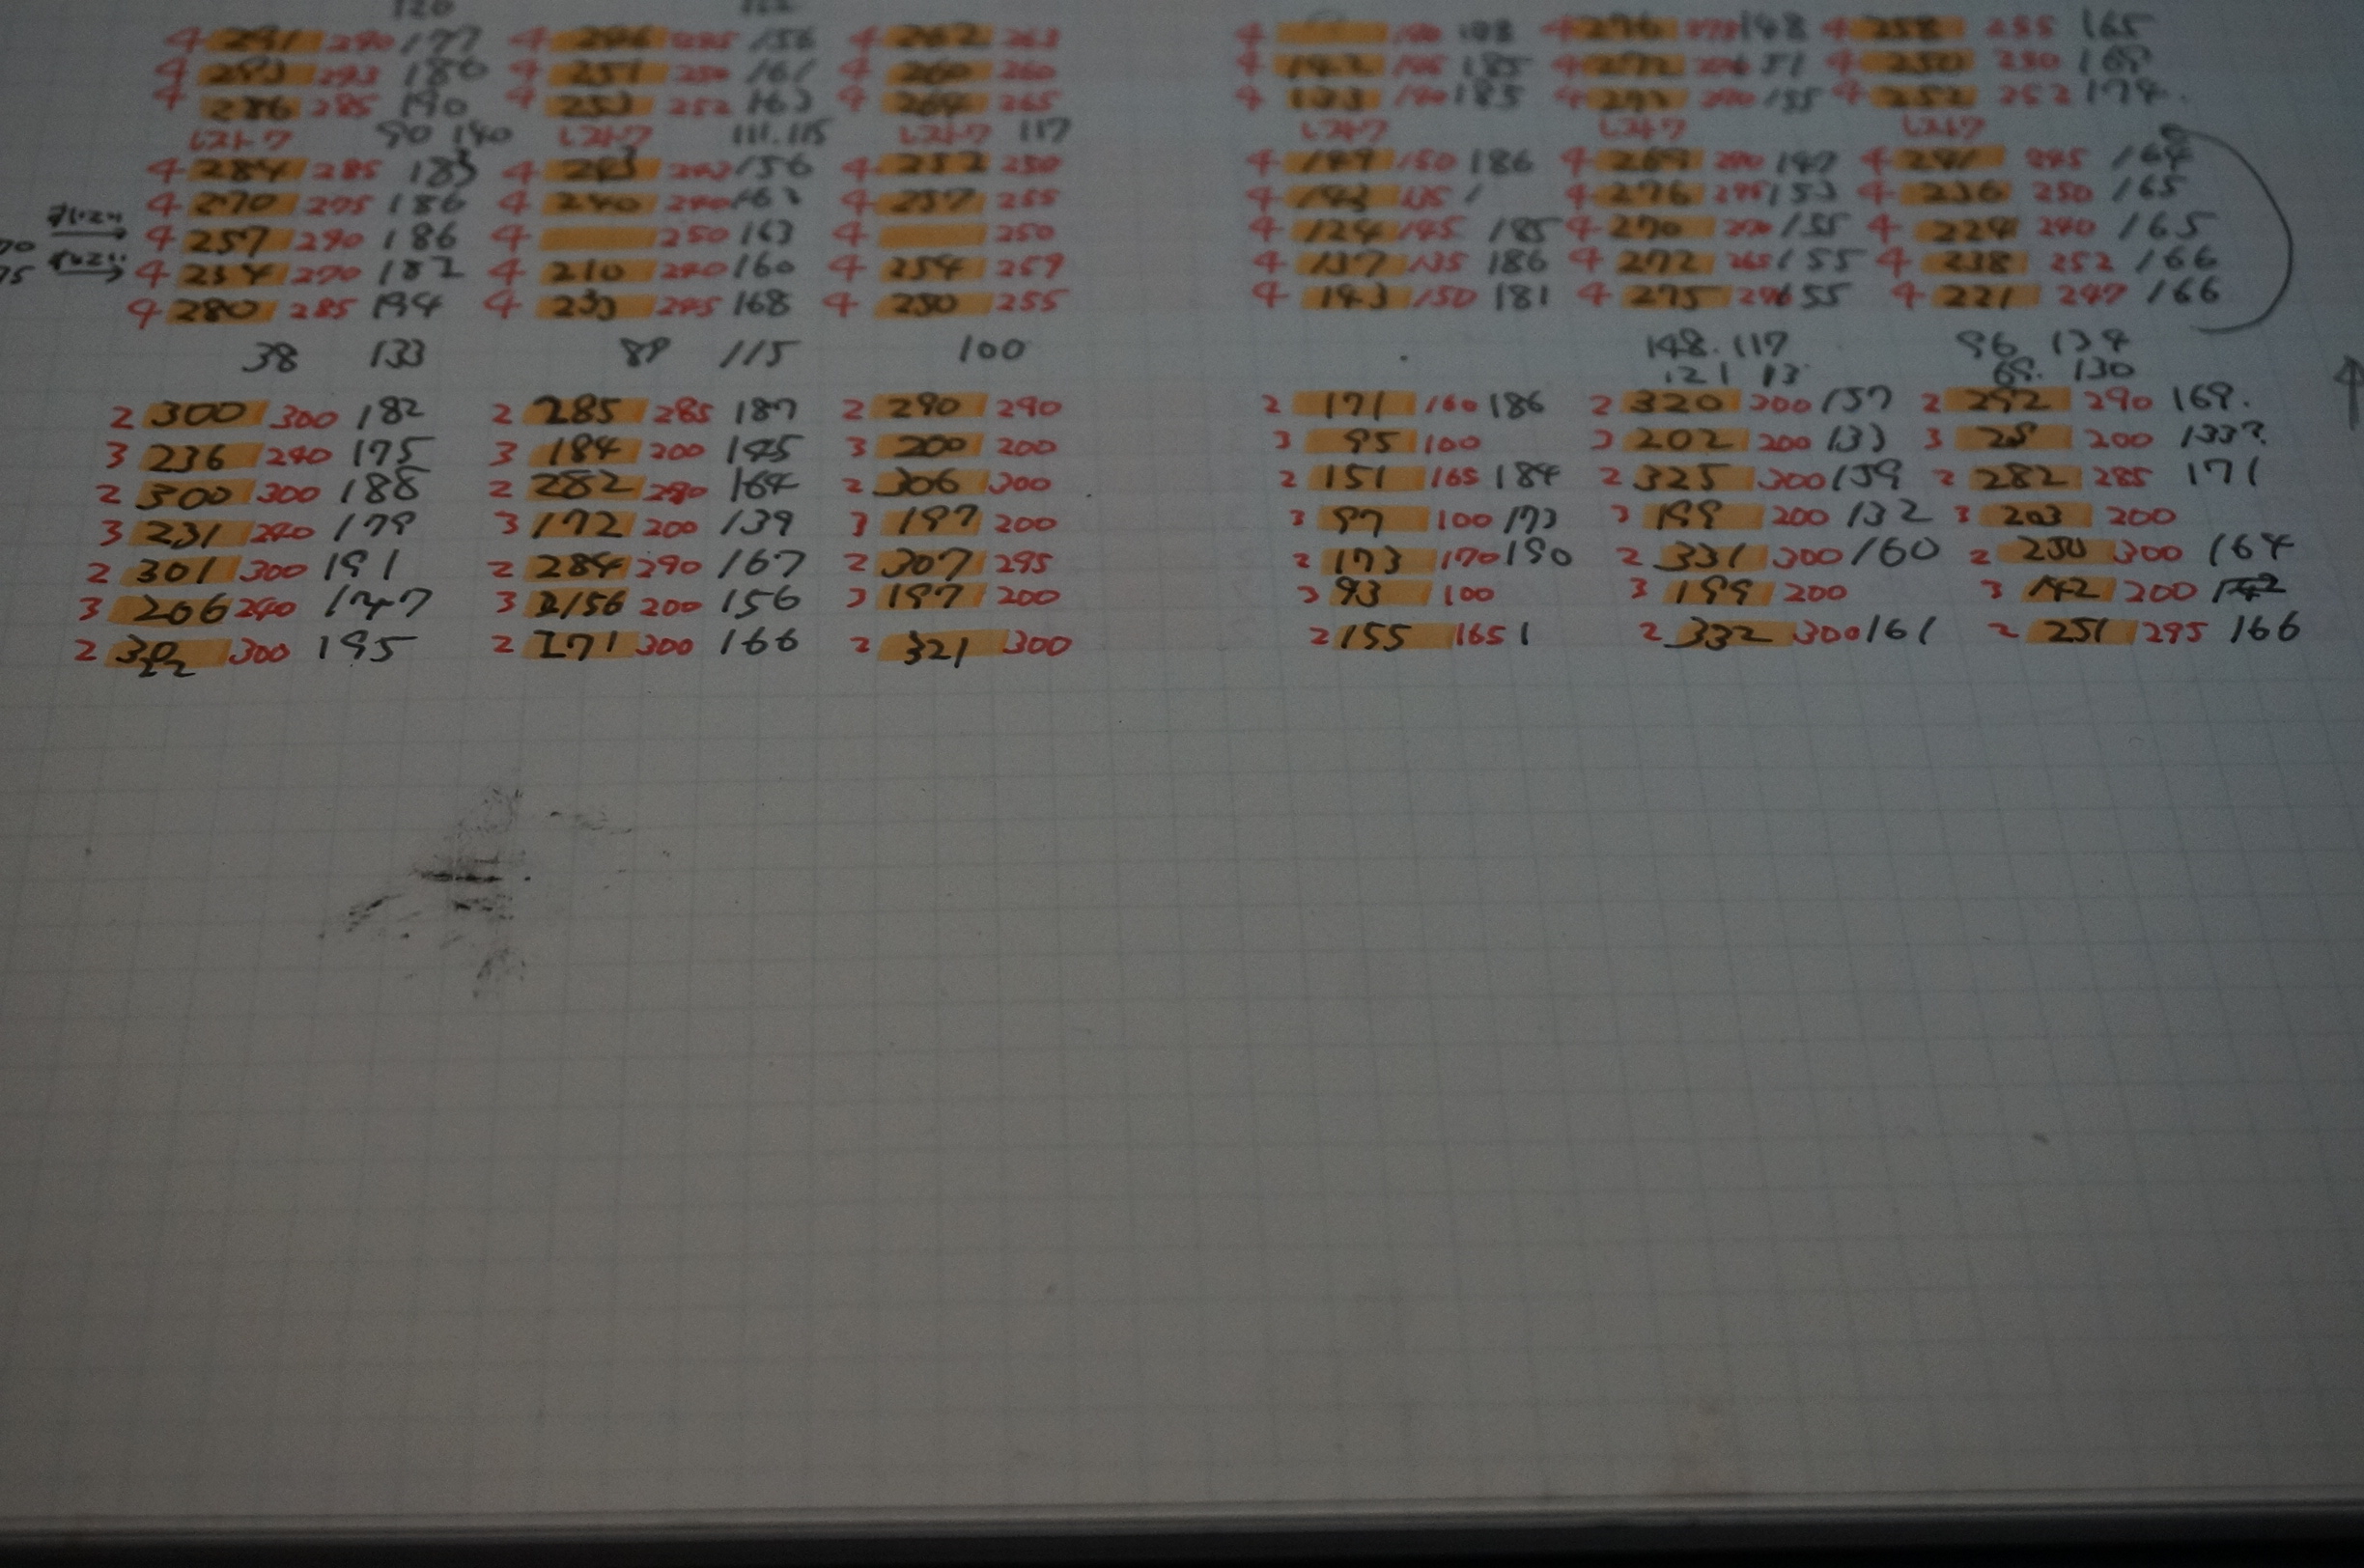 120
4 291 290 177 4 246 156 4 262 263 4 4 276 148 4 258 255 165
4 293 293 186 4 251 250 161 4 260 260 4 185 4 272 4 250 250 169
4 286 285 190 4 253 252 163 4 264 265 4 185 4 155 4 252 252 174.
レスト7 90 140 レスト7 111.115 レスト7 117 レスト7 レスト7 レスト7
4 284 285 183 4 243 156 4 252 250 4 149 150 186 4 269 147 4 241 245 164
4 270 275 186 4 240 240 163 4 257 255 4 4 276 153 4 236 250 165
4 257 290 186 4 250 163 4 250 4 124 145 185 4 270 155 4 224 240 165
4 234 270 182 4 210 240 160 4 254 259 4 137 135 186 4 272 265 155 4 238 252 166
4 280 285 194 4 233 245 168 4 250 255 4 143 150 181 4 275 155 4 221 247 166
38 133 89 115 100 148. 117 96 134
121 13 69. 130
2 300 300 182 2 285 285 187 2 290 290 2 171 160 186 2 320 300 157 2 292 290 169.
3 236 240 175 3 184 200 145 3 200 200 3 95 100 3 202 200 133 3 200 133?
2 300 300 188 2 282 280 164 2 306 300 2 151 165 184 2 325 300 159 2 282 285 171
3 231 240 179 3 172 200 139 3 197 200 3 97 100 173 3 199 200 132 3 203 200
2 301 300 191 2 284 290 167 2 307 295 2 173 170 190 2 331 300 160 2 250 300 164
3 206 240 147 3 156 200 156 3 197 200 3 93 100 3 199 200 3 142 200
2 300 195 2 271 300 166 2 321 300 2 155 165 1 2 332 300 161 2 251 295 166